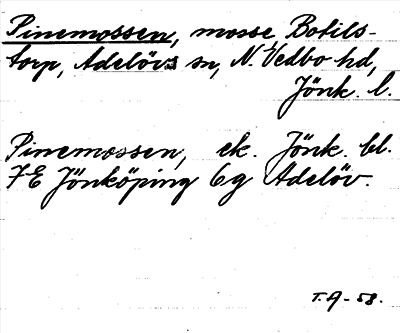 Pinemossen, mosse Botils-
torp, Adelövs sn, N. Vedbo hd,
Jönk. l.
Pinemossen, ek. Jönk. bl.
7E Jönköping 6g Adelöv.
T.A-58.